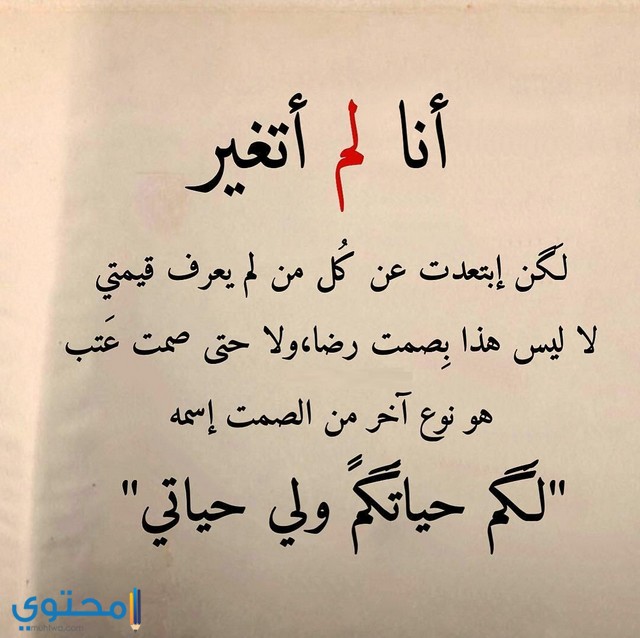 أنا لم أتغير
لَگن إبتعدت عن كُل من لم يعرف قيمتي
لا ليس هذا بِصمت رضا،ولا حتى صمت عَتب
هو نوع آخر من الصمت إسمه
"لَگَم حياتَگمً ولي حياتي"
محتوى
muhtwa.com